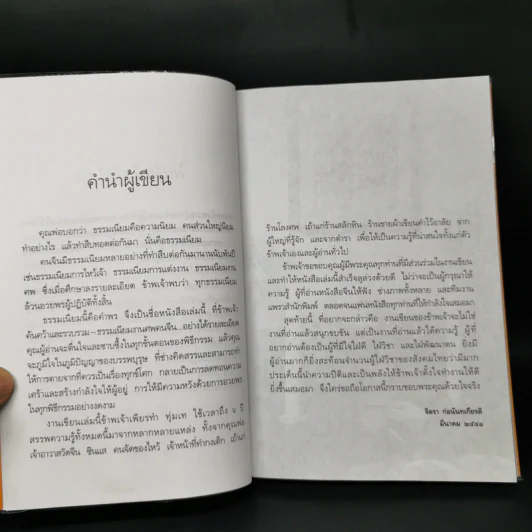 คำนำผู้เขียน
คุณพ่อบอกว่า ธรรมเนียมคือความนิยม คนส่วนใหญ่นิยม
ทำอย่างไร แล้วทำสืบทอดต่อกันมา นั่นคือธรรมเนียม
คนจีนมีธรรมเนียมหลายอย่างที่ทำสืบต่อกันมานานนับพันปี
เช่นธรรมเนียมการไหว้เจ้า ธรรมเนียมการแต่งงาน ธรรมเนียมงาน
ศพ ซึ่งเมื่อศึกษาลงรายละเอียด ข้าเจ้าพบว่า ทุกธรรมเนียม
ล้วนอวยพรผู้ปฏิบัติทั้งสิ้น
ธรรมเนียมนี้คือคำพร จึงเป็นชื่อหนังสือเล่มนี้ ที่ข้าเจ้า
ค้นคว้าและรวบรวม–ธรรมเนียมงานศพคนจีน...อย่างได้รายละเอียด
คุณผู้อ่านจะตื่นใจและซาบซึ้งในทุกขั้นตอนของพิธีกรรม แล้วคุณ
จะภูมิใจในภูมิปัญญาของบรรพบุรุษ ที่ช่างคิดสรรและสามารถ
ให้การตายจากที่ควรเป็นเรื่องทุกข์โศก กลายเป็นการลดทอนความ
เศร้าและสร้างกำลังใจให้ผู้อยู่ การให้มีความหวังด้วยการอวยพร
ในทุกพิธีกรรมอย่างงดงาม
งานเขียนเล่มนี้ข้าเจ้าเพียรทำ ทุ่มเท ใช้เวลาถึง ๖ ปี
สรรพความรู้ทั้งหมดนี้มาจากหลากหลายแหล่ง ทั้งจากคุณพ่อ
เจ้าอาวาสวัดจีน ซินแส คนจัดของไหว้ เจ้าหน้าที่ทำกงเต็ก เถ้าแก่
ร้านโลงศพ เถ้าแก่ร้านสลักหิน ร้านขายผ้าเขียนคำไว้อาลัย จาก
ผู้ใหญ่ที่รู้จัก และจากตำรา เพื่อให้เป็นความรู้ที่น่าสนใจทั้งแก่ตัว
ข้าเจ้าเองและผู้อ่านทั่วไป
ข้าเจ้าขอขอบคุณผู้มีพระคุณทุกท่านที่มีส่วนร่วมในงานเขียน
และทำให้หนังสือเล่มนี้สำเร็จลุล่วงด้วยดี ไม่ว่าจะเป็นผู้กรุณาให้
ความรู้ ผู้ที่อ่านหนังสือจีนให้ฟัง ช่างภาพทั้งหลาย และทีมงาน
แพรวสำนักพิมพ์ ตลอดจนแฟนหนังสือทุกท่านที่ให้กำลังใจเสมอมา
สุดท้ายนี้ ที่อยากจะกล่าวคือ งานเขียนของข้าเจ้าจะไม่ใช่
งานที่อ่านแล้วสนุกชวนขัน แต่เป็นงานที่อ่านแล้วได้ความรู้ ผู้ที่
อยากอ่านต้องเป็นผู้ที่มีใจใฝ่ดี ใฝ่วิชา และใฝ่พัฒนาตน ยิ่งมี
ผู้อ่านมากก็ยิ่งสะท้อนจำนวนผู้ใฝ่วิชาของสังคมไทยว่ามีมาก
ประเด็นนี้นำความปีติและเป็นพลังให้ข้าเจ้าตั้งใจทำงานให้ดี
ยิ่งขึ้นเสมอมา จึงใคร่ขอถือโอกาสนี้กราบขอบพระคุณด้วยใจจริง
จิตรา ก่อนันทเกียรติ
มีนาคม ๒๕๔๑